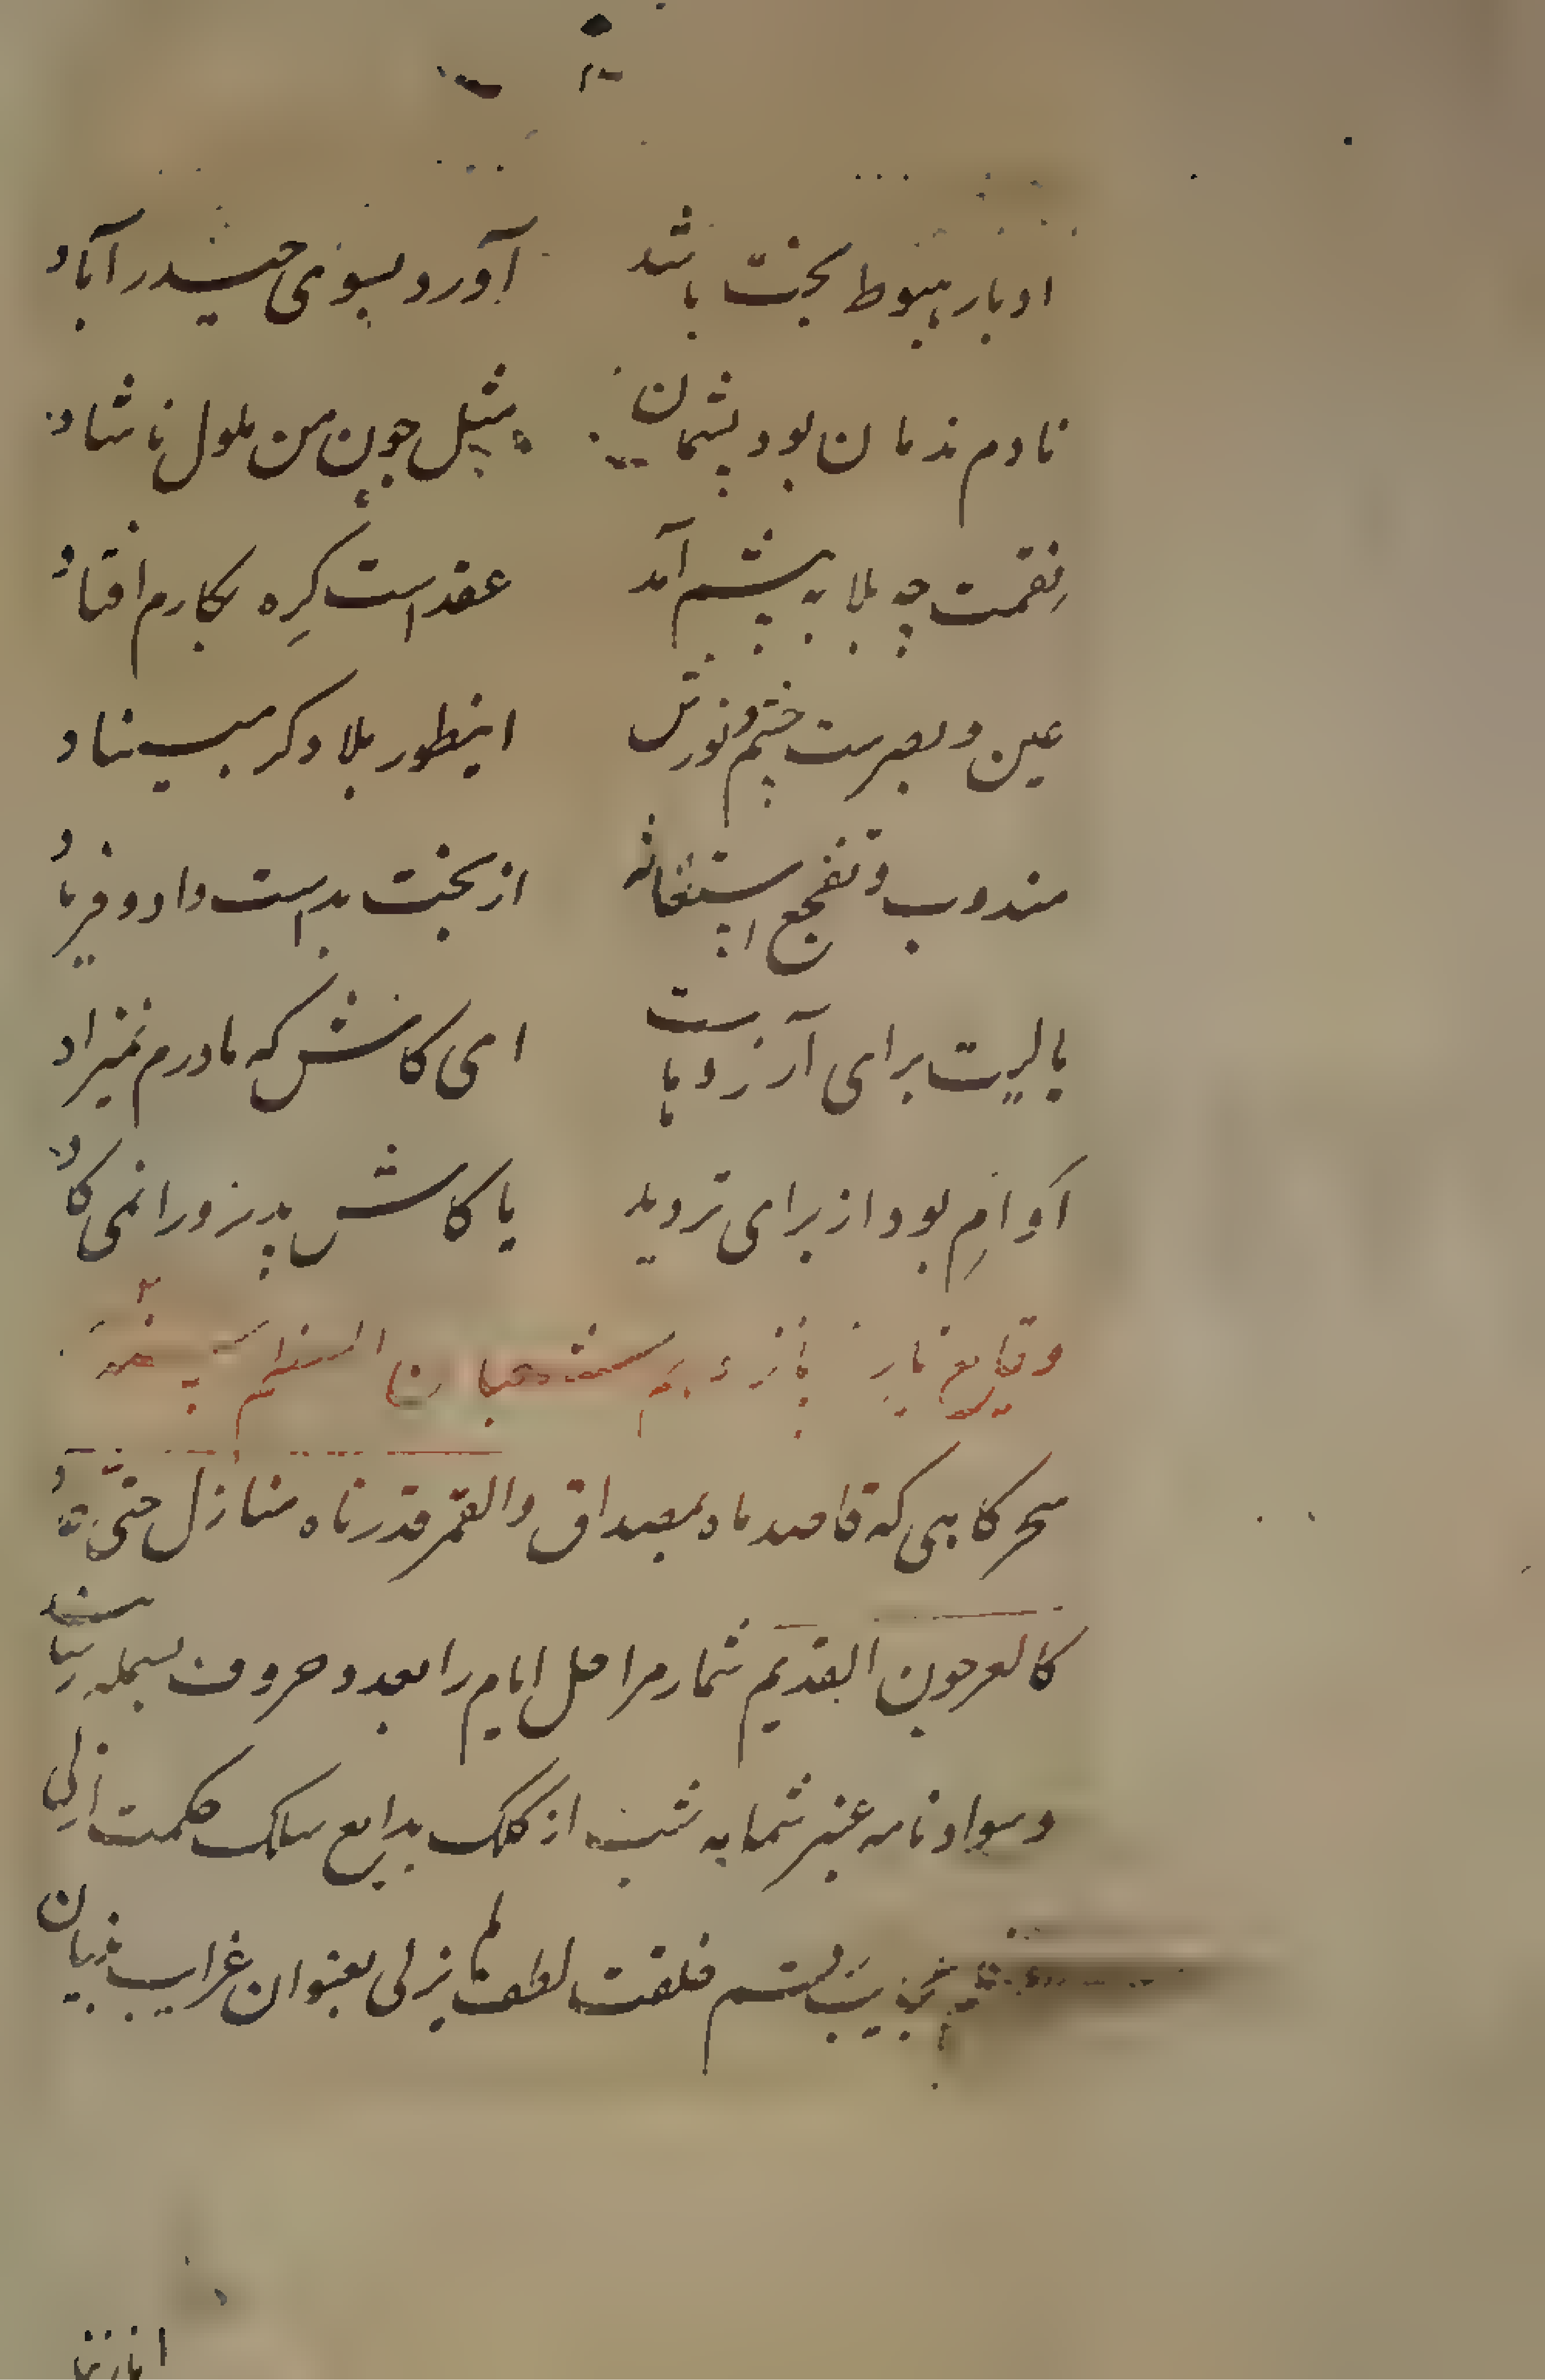 ادبار هبوط بخت باشد آورد بسوی حیدرآباد
نادم ندمان بود پشیمان مثل چون من ملول ناشاد
نقمت چه بلا به پیشم آمد عقد است گره بکارم افتاد
عین و بصرست چشم و نورش اینطور بلا دگر مبیناد
مندوب و تفجع استغاثه از بخت بد است داد و فریاد
یا لیت برای آرزوهاست ای کاش که مادرم نمیزاد
اَو اَم بود از برای تردید یا کاش پدر ورا نمی کاد
وقایع تاریخ پانزدهم شعبان المعظم
سحرگاهی که قاصد ماه بمصداق والقمر قدرناه منازل حتی عاد
کالعرجون القدیم شمار مراحل ایام را بعدد حروف بسمله رسانید
و سواد نامه عنبر شمایه شب از کلک بدایع سلک حکمت ازلی
خلقت لطف لم یزلی بعنوان غرایب بنیان